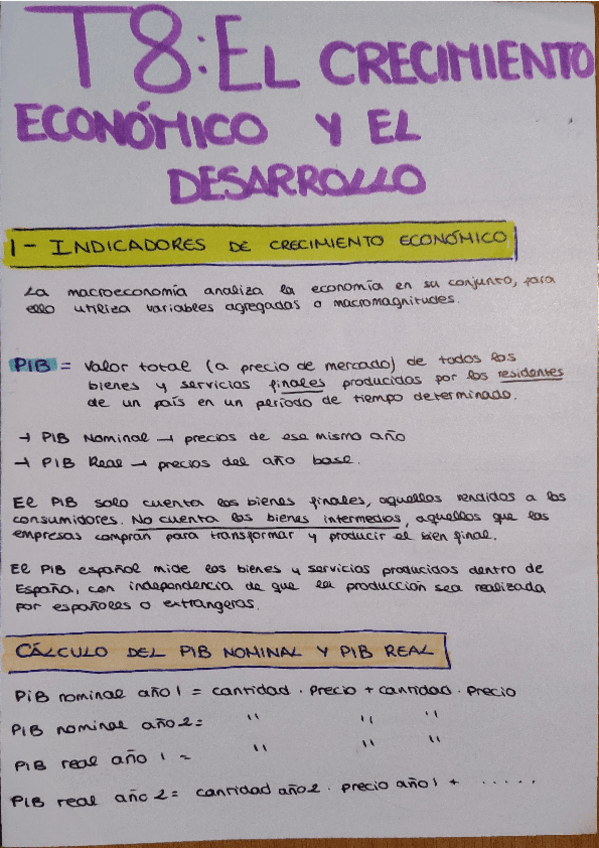 T8: EL CRECIMIENTO
ECONÓMICO Y EL
DESARROLLO
1- INDICADORES DE CRECIMIENTO ECONÓMICO
La macroeconomía analiza la economía en su conjunto, para
ello utiliza variables agregadas o macromagnitudes.
PIB = Valor total (a precio de mercado) de todos los
bienes y servicios finales producidos por los residentes
de un país en un período de tiempo determinado.
→ PIB Nominal → precios de ese mismo año
→ PIB Real → precios del año base.
El PIB solo cuenta los bienes finales, aquellos vendidos a los
consumidores. No cuenta los bienes intermedios, aquellos que las
empresas compran para transformar y producir el bien final.
El PIB español mide los bienes y servicios producidos dentro de
España, con independencia de que la producción sea realizada
por españoles o extrangeros.
CÁLCULO DEL PIB NOMINAL Y PIB REAL
PIB nominal año 1 = cantidad · Precio + cantidad · Precio
PIB nominal año 2 = " " "
PIB real año 1 = " " "
PIB real año 2 = cantidad año 2 · precio año 1 + ......